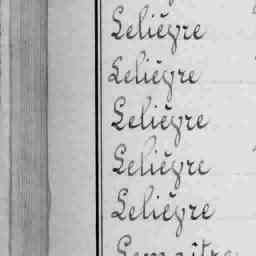 Lelièvre
Lelièvre
Lelièvre
Lelièvre
Lelièvre
Lemaître